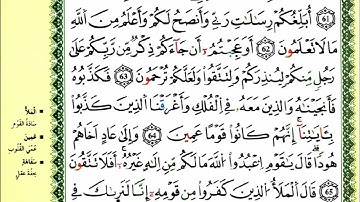 أُبَلِّغُكُمْ رِسَالَاتِ رَبِّي وَأَنصَحُ لَكُمْ وَأَعْلَمُ مِنَ اللَّهِ
مَا لَا تَعْلَمُونَ ٦٢ أَوَعَجِبْتُمْ أَن جَاءَكُمْ ذِكْرٌ مِّن رَّبِّكُمْ عَلَى
رَجُلٍ مِّنكُمْ لِيُنذِرَكُمْ وَلِتَتَّقُوا وَلَعَلَّكُمْ تُرْحَمُونَ ٦٣ فَكَذَّبُوهُ
فَأَنجَيْنَاهُ وَالَّذِينَ مَعَهُ فِي الْفُلْكِ وَأَغْرَقْنَا الَّذِينَ كَذَّبُوا
بِآيَاتِنَا إِنَّهُمْ كَانُوا قَوْمًا عَمِينَ ٦٤ وَإِلَىٰ عَادٍ أَخَاهُمْ
هُودًا قَالَ يَا قَوْمِ اعْبُدُوا اللَّهَ مَا لَكُم مِّنْ إِلَٰهٍ غَيْرُهُ أَفَلَا تَتَّقُونَ
٦٥ قَالَ الْمَلَأُ الَّذِينَ كَفَرُوا مِن قَوْمِهِ إِنَّا لَنَرَاكَ فِي
الْمَلَأُ
سَادَةُ الْقَوْمِ
عَمِينَ
عُمْيَ الْقُلُوبِ
سَفَاهَةٍ
خِفَّةِ عَقْلٍ